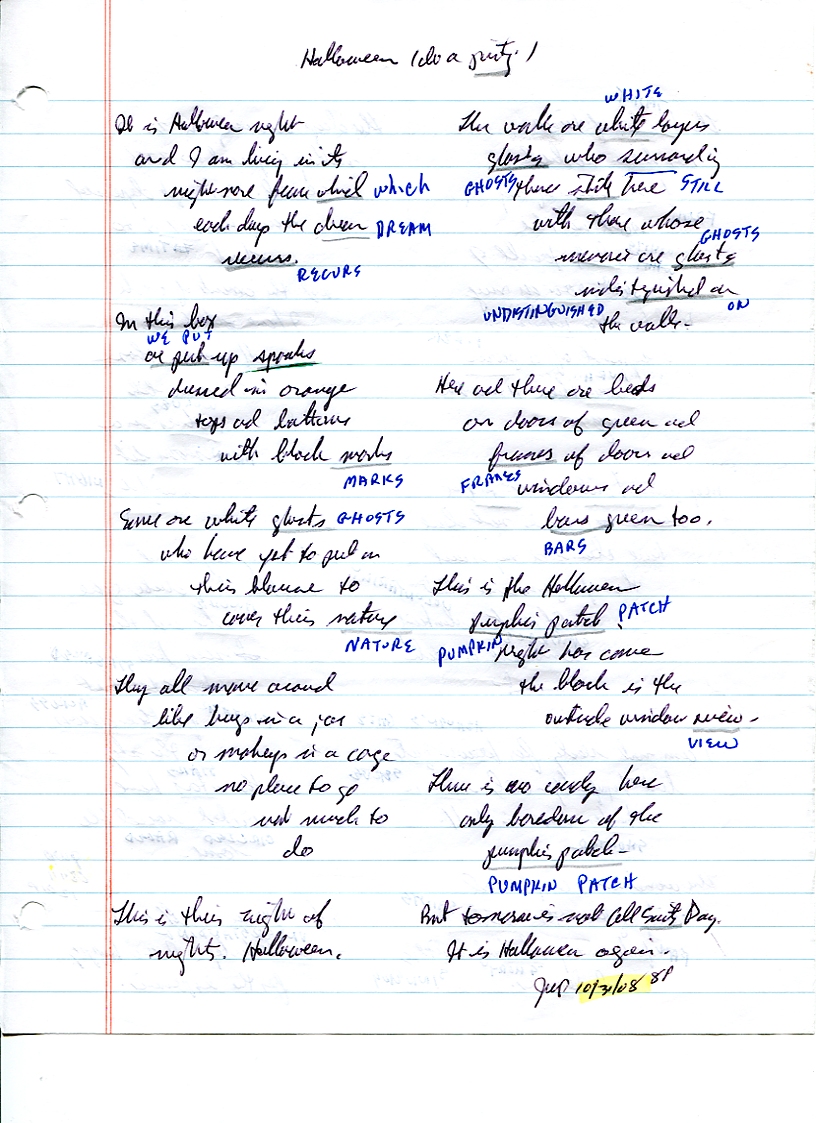 Halloween (do a
It is Halloween night
and I am living in its
nightmare from which which
each day the dream DREAM
recurs.
RECURS
In this box
WE PUT
we put up spooks
dressed in orange
tops and bottoms
with black marks
MARKS
Some are white ghosts GHOSTS
who have yet to put on
their blouse to
cover their nature
NATURE
They all move around
like bugs in a jar
or monkeys in a cage
no place to go
not much to
do
This is their night of
nights. Halloween.
WHITE
The walls are white layers
ghosts who surround
GHOSTS these still here STILL
with those whose
GHOSTS
are ghosts
undistinguished on
UNDISTINGUISHED ON
the walls-
Here and there are beds
or doors of green and
frames of doors and
FRAMES windows and
bars green too.
BARS
This is the Halloween
pumpkin patch PATCH
PUMPKIN Night has come
the black is the
outside window view-
VIEW
There is no candy here
only boredom of the
pumpkin patch-
PUMPKIN PATCH
But tomorrow is not All Saints Day.
It is Halloween again.
10/31/08 8P